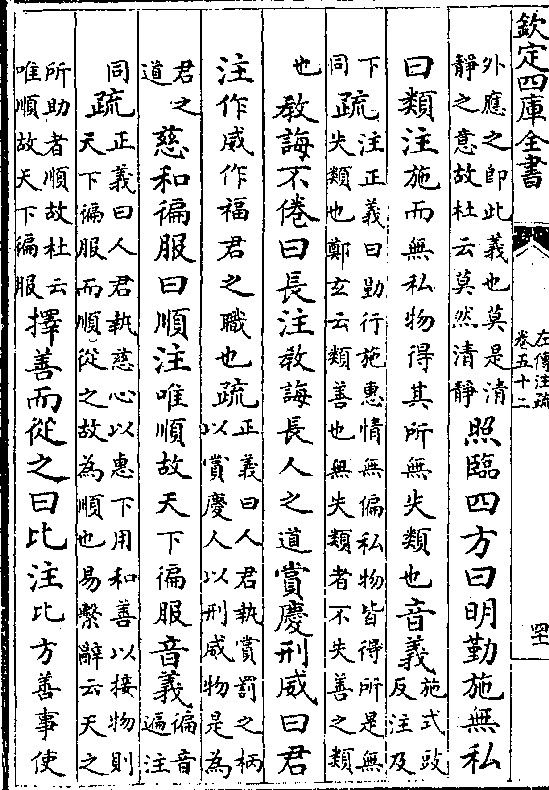 欽定四庫全書
左傳注疏
卷五十二
四十一
外應之即此義也莫是清
靜之意故杜云莫然清靜
照臨四方曰明勤施無私
曰類注施而無私物得其所無失類也音義
施式豉
反注及
下注
同
疏
正義曰勤行施惠情無偏私物皆得所是無
失類也鄭玄云類善也無失類者不失善之類
也
教誨不倦曰長注教誨長人之道賞慶刑威曰君
注作威作福君之職也疏
正義曰人君執賞罰之柄
以賞慶人以刑威物是為
君之
道
慈和徧服曰順注唯順故天下徧服音義
徧音
遍注
同
疏
正義曰人君執慈心以惠下用和善以接物則
天下徧服而順從之故為順也易繫辭云天之
所助者順故杜云
唯順故天下徧服
擇善而從之曰比注比方善事使